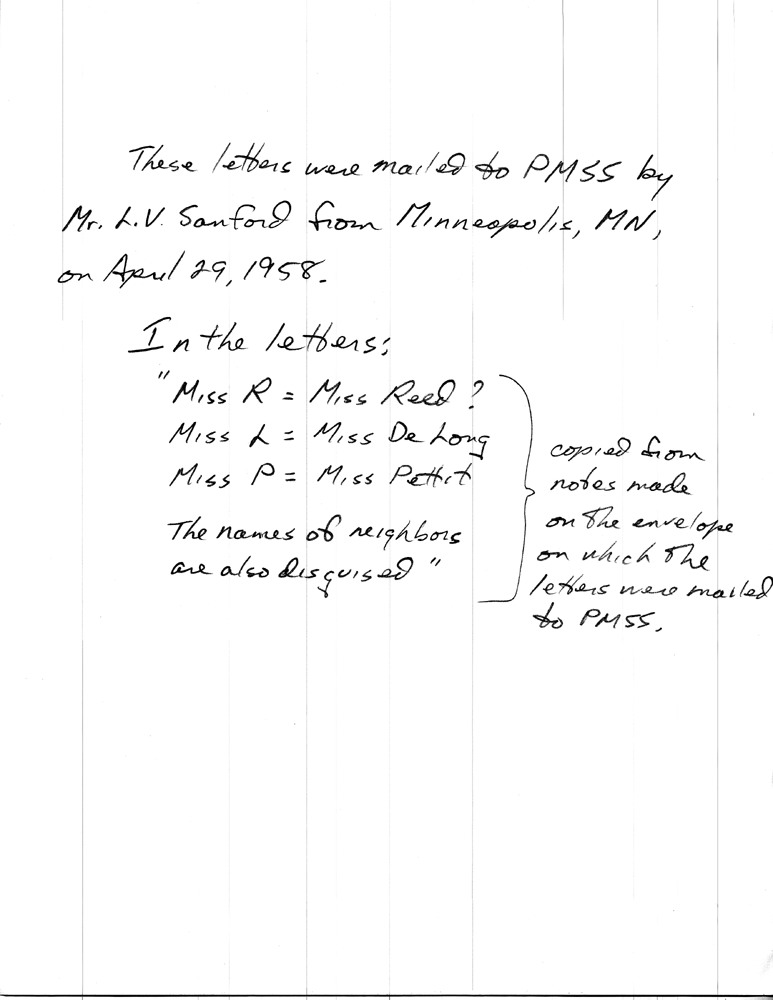 These letters were mailed to PMSS by
Mr. L.V. Sanford from Minneapolis, MN,
on April 29, 1958.
In the letters;
"Miss R = Miss Reed?
Miss L = Miss De Long
Miss P = Miss Pettit
The names of neighbors
are also disguised"
copied from
notes made
on the envelope
on which the
letters were mailed
to PMSS.